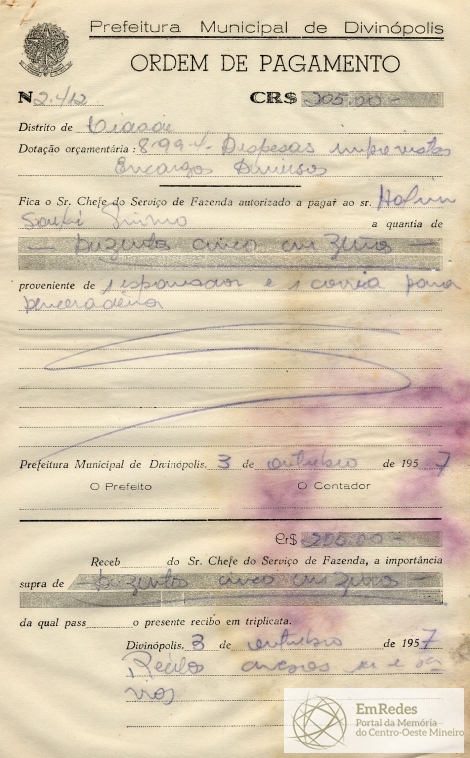 Prefeitura Municipal de Divinópolis
ORDEM DE PAGAMENTO
N 2.412 CR$ 205,00 -
Distrito de Cidade
Dotação orçamentária: 8-99-4- Despesas imprevistas
Encargos Diversos
Fica o Sr. Chefe do Serviço de Fazenda autorizado a pagar ao sr.
a quantia de
- duzentos cinco cruzeiros -
proveniente de 1 espanador e 1 correia para
enceradeira
Prefeitura Municipal de Divinópolis, 3 de outubro de 1957
O Prefeito O Contador
Cr$ 205,00 -
Receb do Sr. Chefe do Serviço de Fazenda, a importância
supra de - duzentos cinco cruzeiros -
da qual pass o presente recibo em triplicata.
Divinópolis, 3 de outubro de 1957
Recibos anexos
EmRedes
Portal da Memória
do Centro-Oeste Mineiro